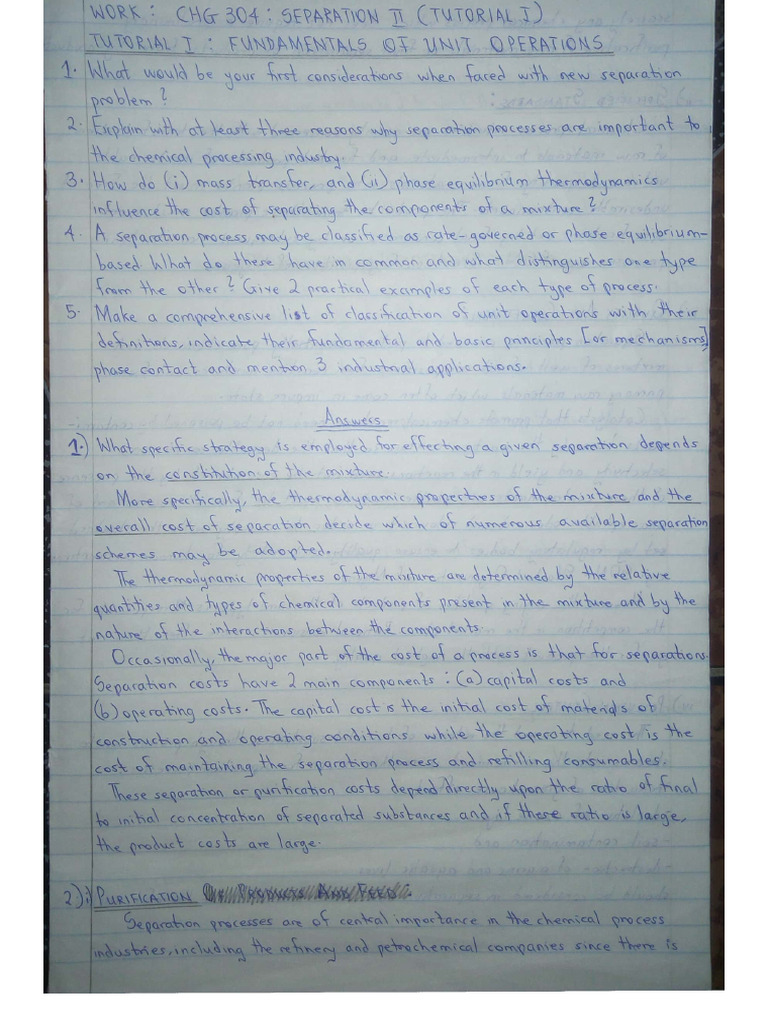 WORK: CHG 304: SEPARATION II (TUTORIAL I)
TUTORIAL I: FUNDAMENTALS OF UNIT OPERATIONS
1. What would be your first considerations when faced with new separation
problem?
2. Explain with at least three reasons why separation processes are important to
the chemical processing industry.
3. How do (i) mass transfer, and (ii) phase equilibrium thermodynamics
influence the cost of separating the components of a mixture?
4. A separation process may be classified as rate-governed or phase equilibrium-
based. What do these have in common and what distinguishes one type
from the other? Give 2 practical examples of each type of process.
5. Make a comprehensive list of classification of unit operations with their
definitions, indicate their fundamental and basic principles [or mechanisms],
phase contact and mention 3 industrial applications.
Answers
1.) What specific strategy is employed for effecting a given separation depends
on the constitution of the mixture.
More specifically, the thermodynamic properties of the mixture and the
overall cost of separation decide which of numerous available separation
schemes may be adopted.
The thermodynamic properties of the mixture are determined by the relative
quantities and types of chemical components present in the mixture and by the
nature of the interactions between the components.
Occasionally, the major part of the cost of a process is that for separations.
Separation costs have 2 main components: (a) capital costs and
(b) operating costs. The capital cost is the initial cost of materials of
construction and operating conditions while the operating cost is the
cost of maintaining the separation process and refilling consumables.
These separation or purification costs depend directly upon the ratio of final
to initial concentration of separated substances and if these ratio is large,
the product costs are large.
2) i) PURIFICATION
Separation processes are of central importance in the chemical process
industries, including the refinery and petrochemical companies since there is